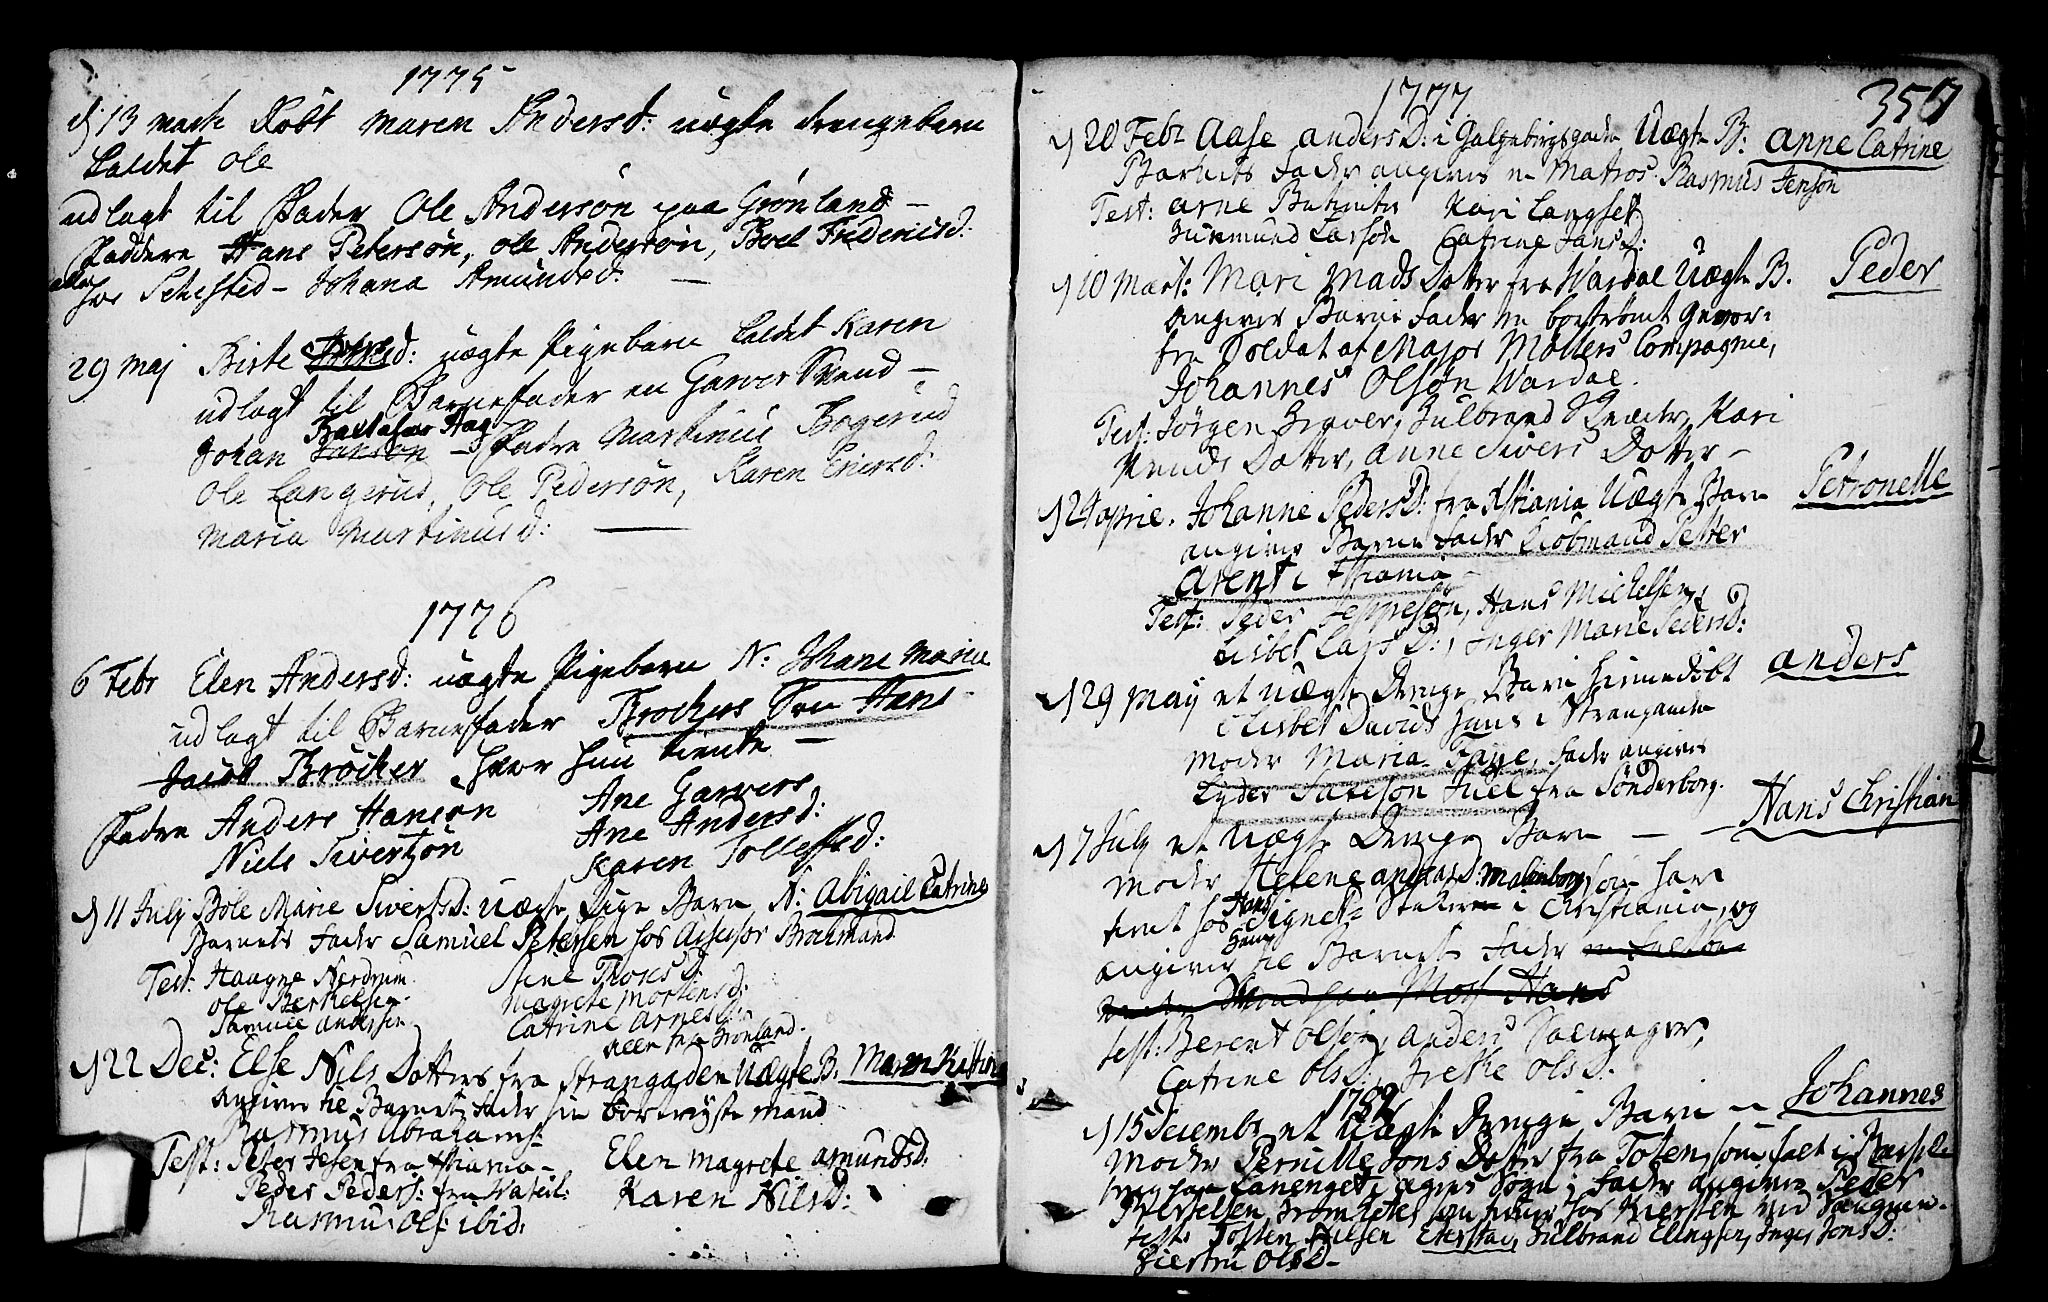 1775
d 13 Martz Døbt Maren Andersd: uægte drengebarn
kaldet Ole
udlagt til Fader Ole Andersøn paa Grønland –
Faddere Hans Petersøn, Ole Andersøn, Boel Fredericsd:
hos Schested – Johana Amundsd: —
29 Maj Birte uægte Pigebarn kaldet Karen
udlagt til Barnefader en Garver Svend –
Baltaser Hag
Johan Jansøn – Fadre Martinus Bogerud
Ole Langerud, Ole Pedersøn, Karen Ericsd:
Maria Martinusd: —
1776
6 Febr Elen Andersd: uægte Pigebarn N: Johane Marie
udlagt til Barnefader Brochers Søn Hans
Jacob Bröcker hvor hun tiente –
Fadre Anders Hansøn Ane Garvers
Niels Sivertzøn Ane Andersd:
Karen Tollefsd:
d 11 July Bole Marie Siversd: Uægte Pige Barn N: Abigail Catrine
Barnets Fader Samuel Petersen hos Assessor Brochmand
Test: Haagne Nerdrum Stene Thores D:
Ole Berthelsen Magrete Mortensd:
Samuel Andersen Catrine Arnes D:
alle fra Grønland.
d 22 Dec: Else Nils Dotters fra Strangaden Uægte B. Maren Kistine
angiver til Barnets Fader sin bortreyste Mand
Rasmus Abrahams:
Test: Peter Jesen fra Xtiania – Elen Magrete Amundsd:
Peder Peders: fra Karen Nilsd:
Rasmus Ols: ibid:
1777
357
d 20 Febr Aase Anders D: i Galgebergsgaden Uægte B: Anne Catrine
Barnets Fader angives en Matros Rasmus Jensøn
Test: Arne Kari Langset
Gudmund Larsøn Catrine Jans D:
d 10 Mart: Mari Mads Dotter fra Wardal Uægte B. Peder
angiver Barne Fader en bortrømt Gevor-
fne Soldat af Major Møllers Compagnie,
Johannes Olsøn Wardal.
Test: Jørgen Graver, Gulbrand Kari
Knuds Dotter, Anne Sivers Dotter –
d 24 April. Johanne Peders D: fra Xstiania Uægte Barn Petronelle
angiver Barne Fader Kiøbmand Petter
Arent i Xstiania –
Test: Peder Jeppesøn, Hans Michelsen,
Lisbet Lars D:, Inger Marie Pedersd:
d 29 May et Uægte Drenge Barn hiemedøbt Anders
Elisbet Davids i Strangaden
Moder Maria Faye, Fader angives
Lyder Juel fra Sönderborg.
d 7 July et Uægte Drenge Barn — Hans Christian
Moder Helene Anders D: Malmborg, som har
Hans
tient hos Signet Stikeren i Christiania, og
angiver til Barnets Fader
Mand paa Moss Hans
Test: Berent Olsøn, Anders
Catrine Ols D:, Grethe Ols D.
1782
d 15 Decembr et Uægte Drenge Barn – Johannes
Moder Pernille Jons Dotter fra Toten, som falt i Barsel
paa Langenget, Agers Sogn; Fader angives Peder
Iversøn, som tiener hos Kiersten ved Vaagnen.
Test: Tosten Nilsen Eterstad, Gulbrand Elingsen, Inger Jons D:
Kiersti Ols D –